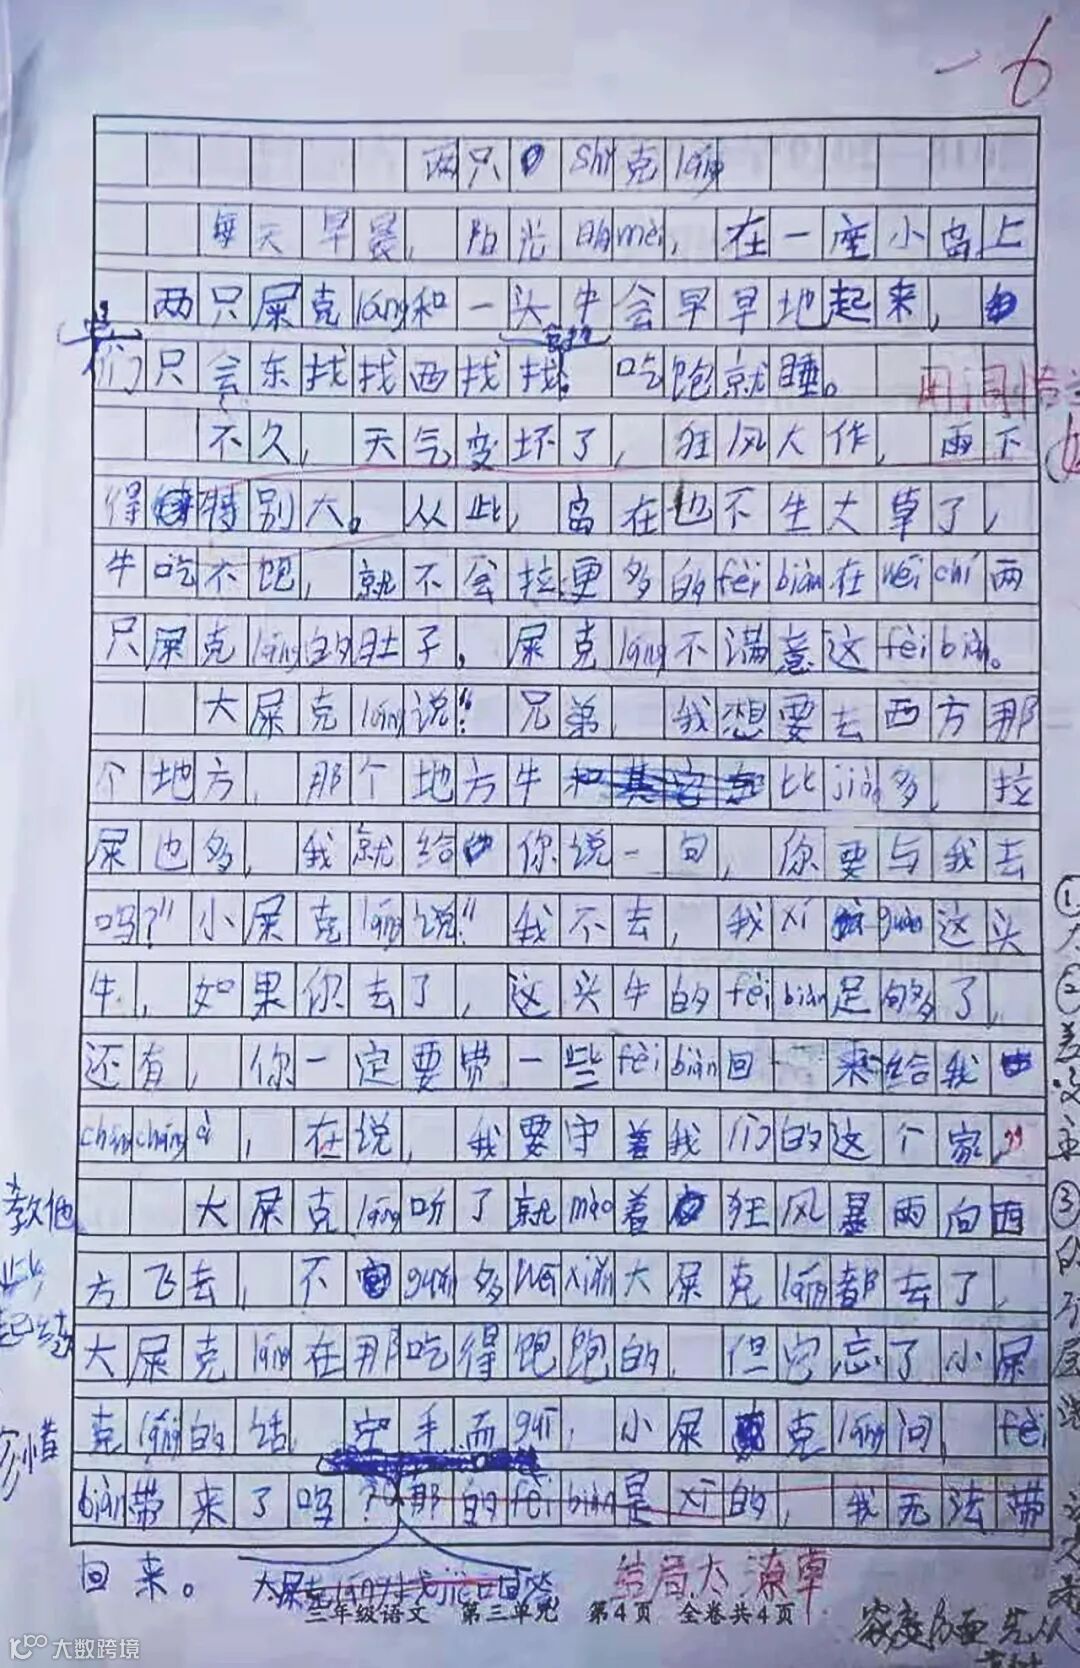 -6
两只 shǐ克láng
每天早晨，阳光明mèi，在一座小岛上
两只屎克láng和一头牛会早早地起来，
们只会东找找西找找。吃饱就睡。
不久，天气变坏了，狂风大作，雨下
得特别大。从此，岛在也不生大草了，
牛吃不饱，就不会拉更多的fèibiàn在wèi chí两
只屎克láng的肚子，屎克láng不满意这fèibiàn。
大屎克láng说："兄弟，我想要去西方那
个地方，那个地方牛比jiào多，拉
屎也多，我就给你说一句，你要与我去
吗？"小屎克láng说"我不去，我xíguàn这头
牛，如果你去了，这头牛的fèibiàn足够了，
还有，你一定要带一些fèibiàn回来给我
chángcháng，在说，我要守着我们的这个家，"
大屎克láng听了就mào着狂风暴雨向西
方飞去，不guǎn多wēixiǎn大屎克láng都去了，
大屎克láng在那吃得饱饱的，但它忘了小屎
克láng的话，空手而guī，小屎克láng问，fèi
biàn带来了吗？那的fèibiàn是xī的，我无法带
回来。
结局太潦草
三年级语文 第三单元 第4页 全卷共4页
大数跨境